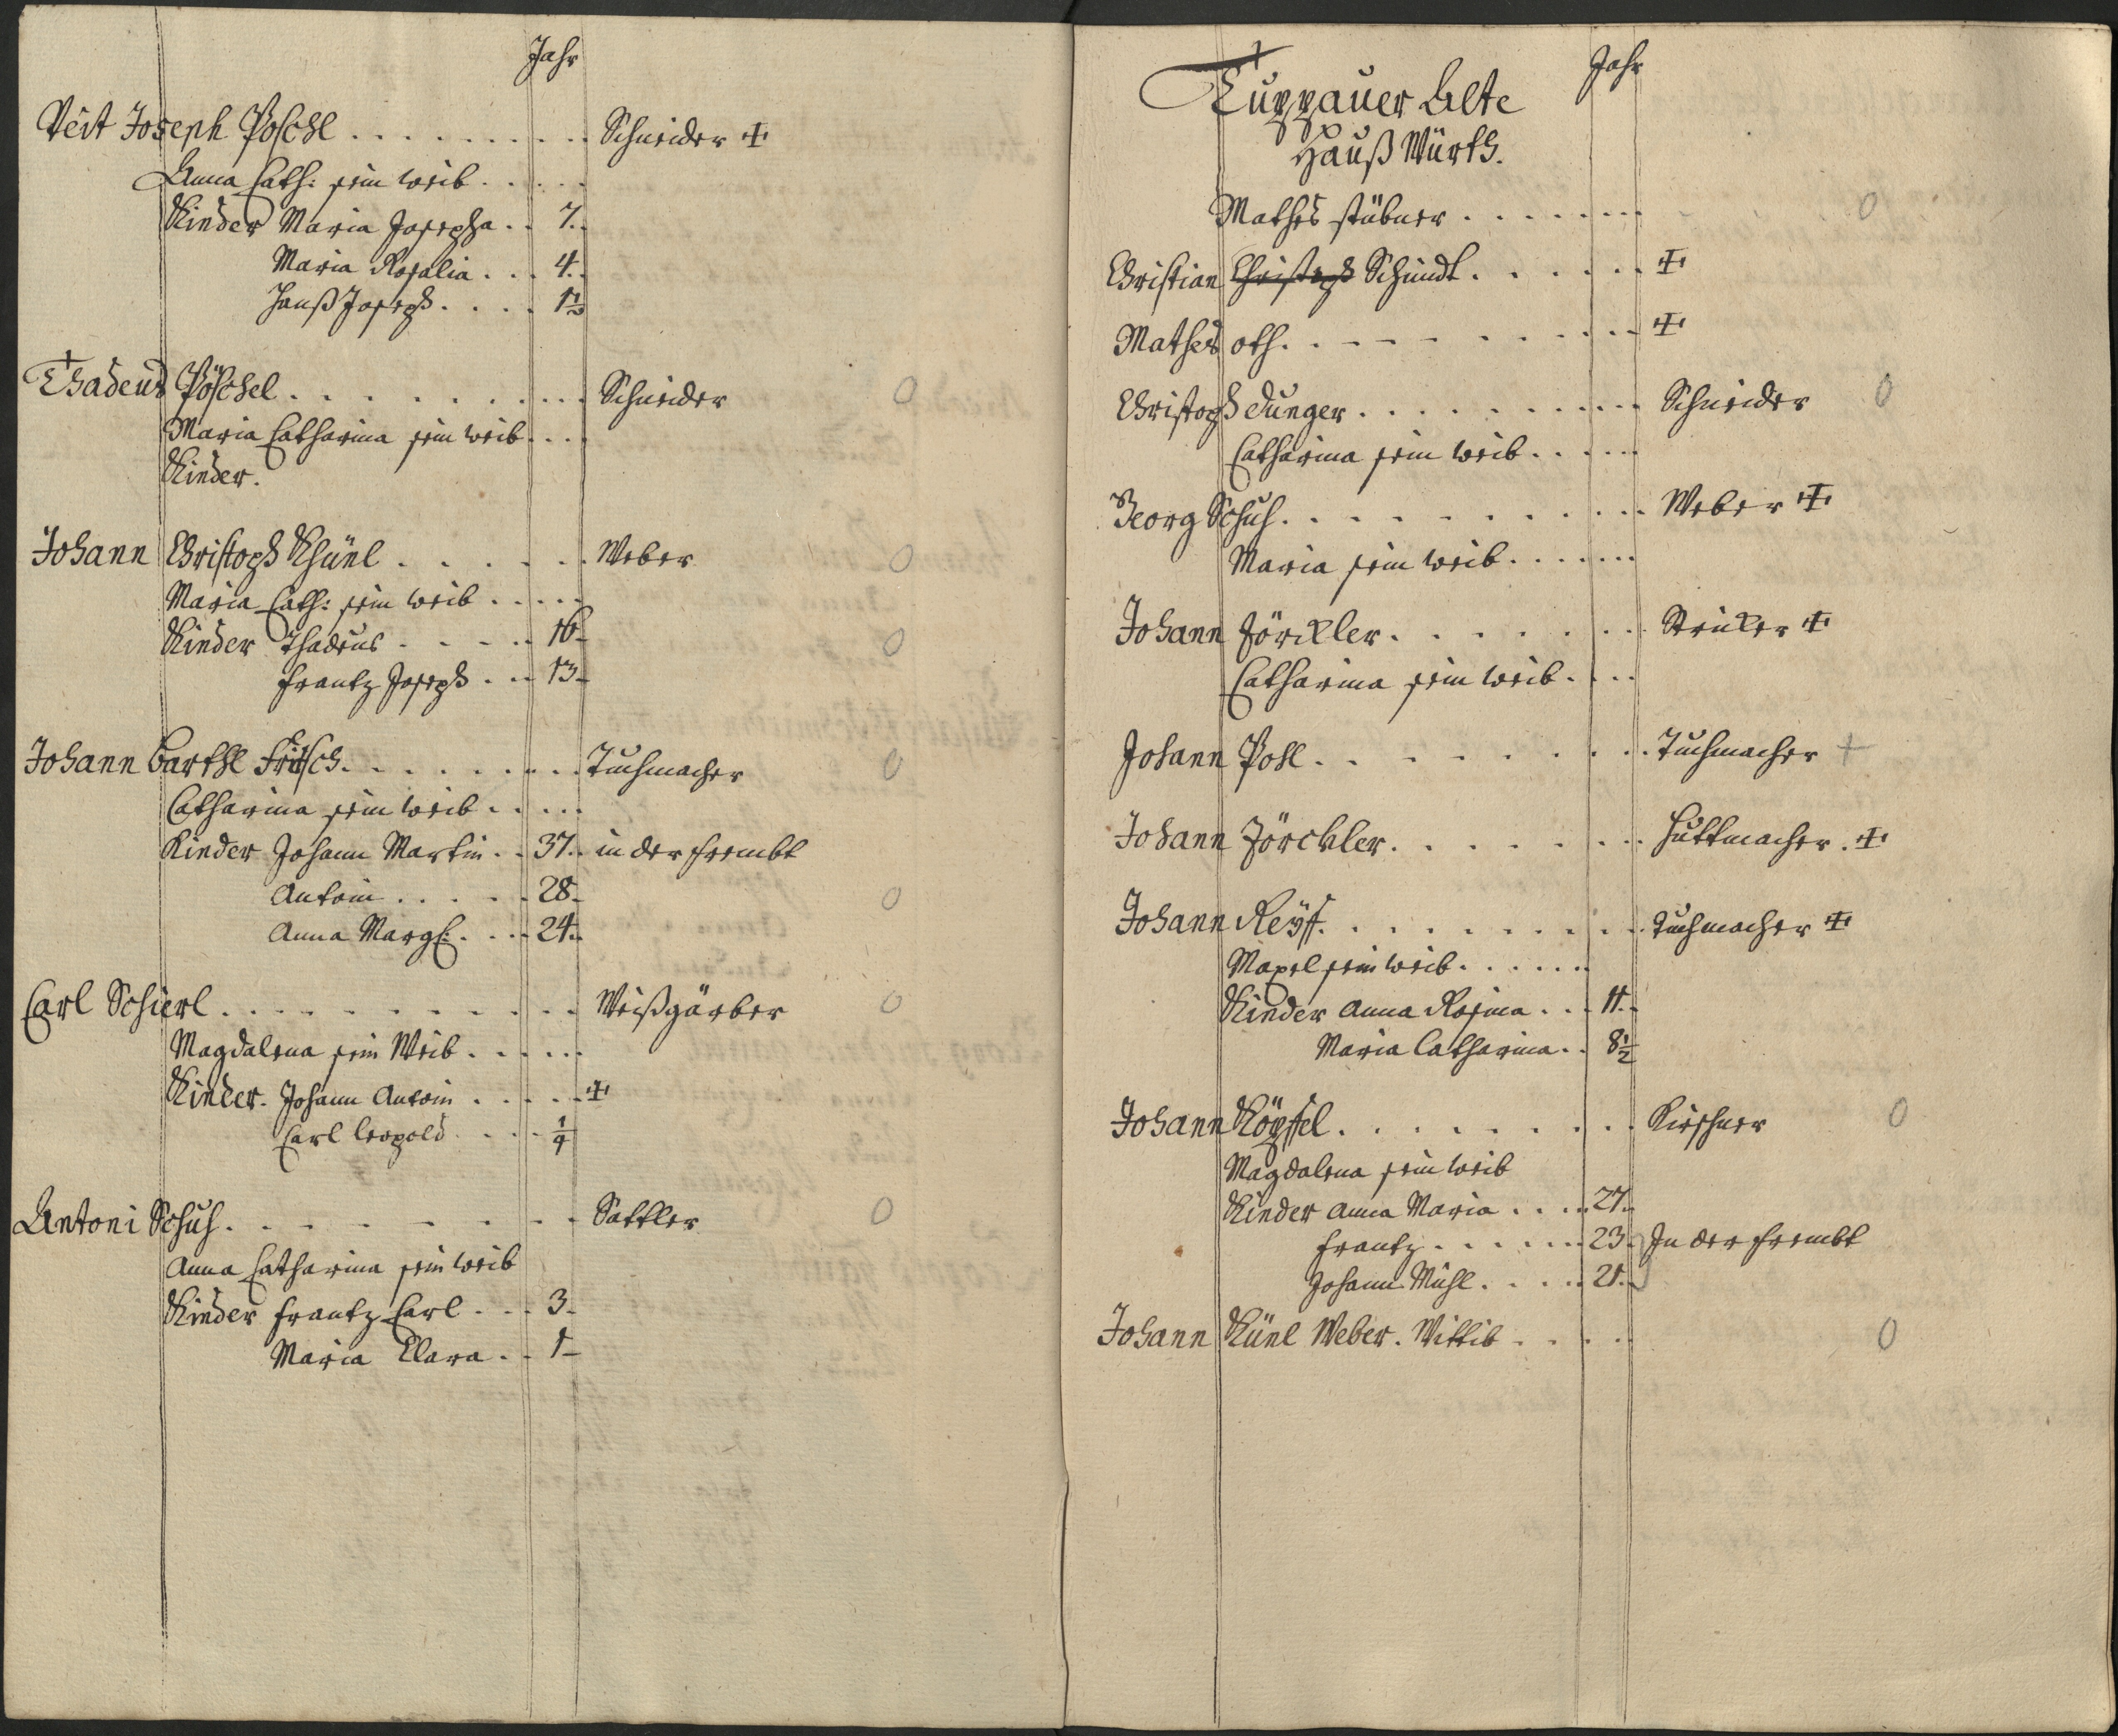 Jahr
Veit Joseph Poschl . . . . . . . . . Schneider +
Anna Cath: sein weib . . . . .
Kinder Maria Josepha . . 7.
Maria Rosalia . . . 4.
Hanß Joseph . . . . 1½
Thadeus Pöschel . . . . . . . . . Schneider 0
Maria Catharina sein weib . . .
Kinder.
Johann Christoph Khünl . . . . . . Weber 0
Maria Cath: sein weib . . . . .
Kinder Thadeus . . . . . 16 0
Frantz Joseph . . . 13
Johann Barthl Fritsch . . . . . . . . Tuchmacher 0
Catharina sein weib . . . . .
Kinder Johann Martin . . 37. in der frembt
Antoni . . . . . 28. 0
Anna Margl: . . . 24.
Carl Schierl . . . . . . . . . . Weißgärber 0
Magdalena sein Weib . . . . .
Kinder. Johann Antoni . . . . . +
Carl Leopold . . . . ¼
Antoni Schuh . . . . . . . . Sattler 0
Anna Catharina sein weib
Kinder Frantz Carl . . . 3
Maria Clara . . 1
Jahr
Tuppauer Alte
Hauß Würth.
Mathes stübner . . . . . . . 0
Christian Christoph Schmidt . . . . . . +
Mathes oth . . . . . . . . . +
Christoph dunger . . . . . . . . . Schneider 0
Catharina sein weib . . . . .
Georg Schuh . . . . . . . . . . Weber +
Maria sein weib . . . . . . .
Johann Zörckler . . . . . . . Striker +
Catharina sein weib . . . .
Johann Pohl . . . . . . . . Tuchmacher +
Johann Zörckler . . . . . . . . Huttmacher . +
Johann Reÿß . . . . . . . . . Tuchmacher +
sein weib . . . . . .
Kinder Anna Rosina . . . 11.
Maria Catharina . . 8½
Johann . . . . . . . . Kirschner 0
Magdalena sein weib
Kinder Anna Maria . . . . 27.
Frantz . . . . . . 23. In der frembt
Johann Michl . . . . . 21.
Johann Künl Weber. Wittib . . . . . 0